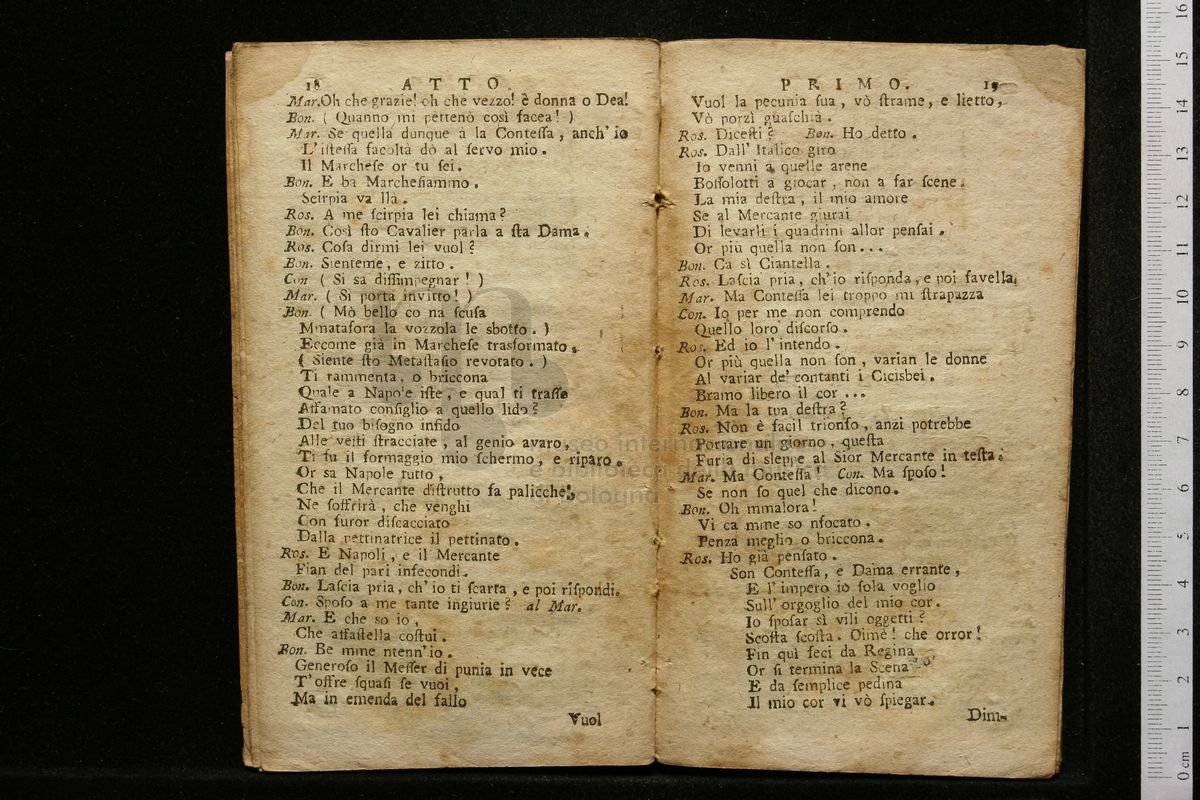 18 ATTO
Mar. Oh che grazie! oh che vezzo! è donna o Dea!
Bon. ( Quanno mi pettenò così facea! )
Mar. Se quella dunque à la Conteſſa, anch' io
L' iſteſſa facoltà dò al ſervo mio.
Il Marcheſe or tu ſei.
Bon. E ba Marcheſiammo.
Scirpia va lla.
Ros. A me ſcirpia lei chiama?
Bon. Così ſto Cavalier parla a ſta Dama.
Ros. Coſa dirmi lei vuol?
Bon. Sienteme, e zitto.
Con ( Si sa diſſimpegnar! )
Mar. ( Si porta invitto! )
Bon. ( Mò bello co na ſcuſa
Mmataſora la vozzola le sbotto. )
Eccome già in Marcheſe trasformato.
( Siente ſto Metaſtaſio revotato. )
Ti rammenta, o briccona
Quale a Napole iſte, e qual ti traſſe
Affamato conſiglio a quello lido?
Del tuo biſogno infido
Alle veſti ſtracciate, al genio avaro,
Ti fu il formaggio mio ſchermo, e riparo.
Or sa Napole tutto,
Che il Mercante diſtrutto fa palicche!,
Ne ſoffrirà, che venghi
Con furor diſcacciato
Dalla pettinatrice il pettinato.
Ros. E Napoli, e il Mercante
Fian del pari infecondi.
Bon. Laſcia pria, ch' io ti ſcarta, e poi riſpondi.
Con. Spoſo a me tante ingiurie? al Mar.
Mar. E che so io,
Che affaſtella coſtui.
Bon. Be mme ntenn' io.
Generoſo il Meſſer di punia in vece
T' offre ſquaſi ſe vuoi,
Ma in emenda del fallo
Vuol
PRIMO. 19
Vuol la pecunia ſua, vò ſtrame, e lietto,
Vò porzì guaſchià.
Ros. Diceſti? Bon. Ho detto.
Ros. Dall' Italico giro
Io venni a quelle arene
Boſſolotti a giocar, non a far ſcene.
La mia deſtra, il mio amore
Se al Mercante giurai
Di levarli i quadrini allor penſai.
Or più quella non ſon...
Bon. Ca sì Ciantella.
Ros. Laſcia pria, ch' io riſponda, e poi favella.
Mar. Ma Conteſſa lei troppo mi ſtrapazza
Con. Io per me non comprendo
Quello loro diſcorſo.
Ros. Ed io l' intendo.
Or più quella non ſon, varian le donne
Al variar de' contanti i Cicisbei.
Bramo libero il cor...
Bon. Ma la tua deſtra?
Ros. Non è facil trionfo, anzi potrebbe
Portare un giorno, queſta
Furia di sleppe al Sior Mercante in teſta.
Mar. Ma Conteſſa! Con. Ma ſpoſo!
Se non ſo quel che dicono.
Bon. Oh mmalora!
Vi ca mme so nfocato.
Penza meglio o briccona.
Ros. Ho già penſato.
Son Conteſſa, e Dama errante,
E l' impero io ſola voglio
Sull' orgoglio del mio cor.
Io ſpoſar sì vili oggetti?
Scoſta ſcoſta. Oimè! che orror!
Fin quì feci da Regina
Or ſi termina la Scena
E da ſemplice pedina
Il mio cor vi vò ſpiegar.
Dim-